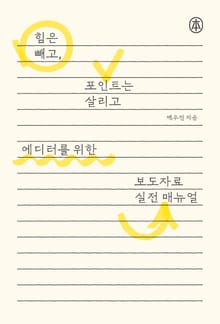 本
힘은
빼고,
포인트는
살리고
배우정 지음
에디터를 위한
보도자료
실전 매뉴얼